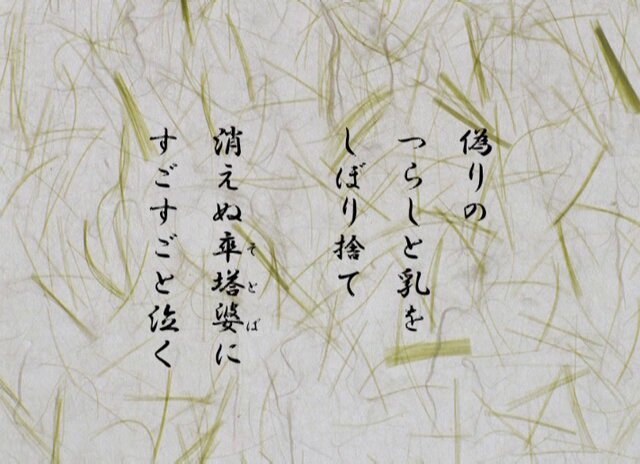 偽りの
つらしと乳を
しぼり捨て
消えぬ卒塔婆に
そとば
すごすごと泣く